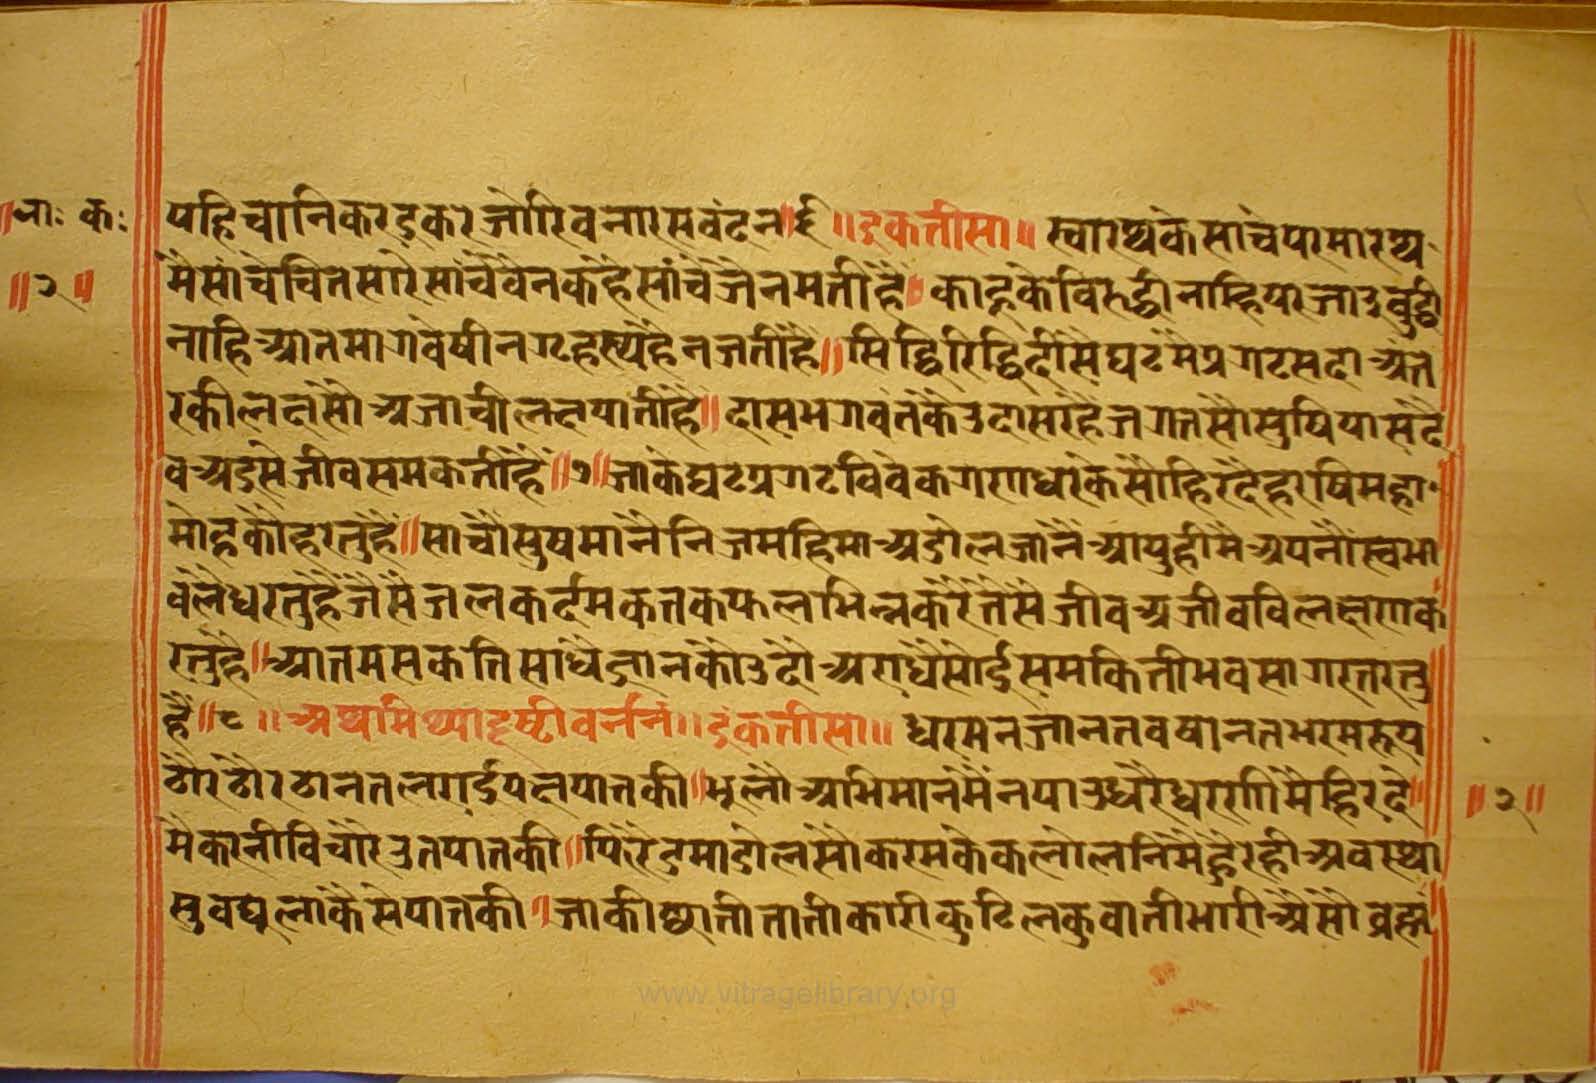 ना॰ क॰
॥२॥
पहिचानिकरइकरजोरिवनारसवंदन॥६॥॥इकतीसा॥स्वारथकेसांचेपरमारथ
मैसांचेचितसारेसांचेवेनकहेसांचेजैनमतीहै॥काहूकेविरूद्धीनाहिपरजाउबुद्धी
नाहिआतमागवेषीनगृहस्थहैनजतीहै॥सिद्धिरिद्धिदीसेघटमैप्रगटसदाअंत
रकीलक्षसौअजाचीलक्षपतीहै॥दासभगवंतकेउदासरहैजगतसौसुषियासदै
वअइसेजीवसमकतीहै॥७॥जाकेघटप्रगटविवेकगणधरकेसौहिरदेहरषिमहा
मोहकौहरतुहै॥साचौसुषमानेनिजमहिमाअडोलजानैआपुहीमैअपनौस्वभा
वलेधरतुहैजैसेंजलकर्दमकतकफलभिन्नकरेतैसेजीवअजीवविलक्षणक
रतुहै॥आतमसकतिसाधैज्ञानकौउदौअराधैसोईसमकितीभवसागरतरतु
है॥८॥अथमिथ्यादृष्टीवर्ननं॥इकतीसा॥धरमनजानतवषानतभरमरूप
ठौरठौरठानतलराईपक्षपातकी॥भूलोअभिमानमैंनपाउधरैधरणीमैहिरदे
मैकरनीविचारेउतपातकी॥फिरेडमाडोलसौकरमकेकलोलनिमैंह्वैरहीअवस्था
सुवघूलाकैसेपातकी॥जाकीछातीतातीकारीकुटिलकुवातीभारीअैसोब्रह्म
॥२॥
www.vitragelibrary.org